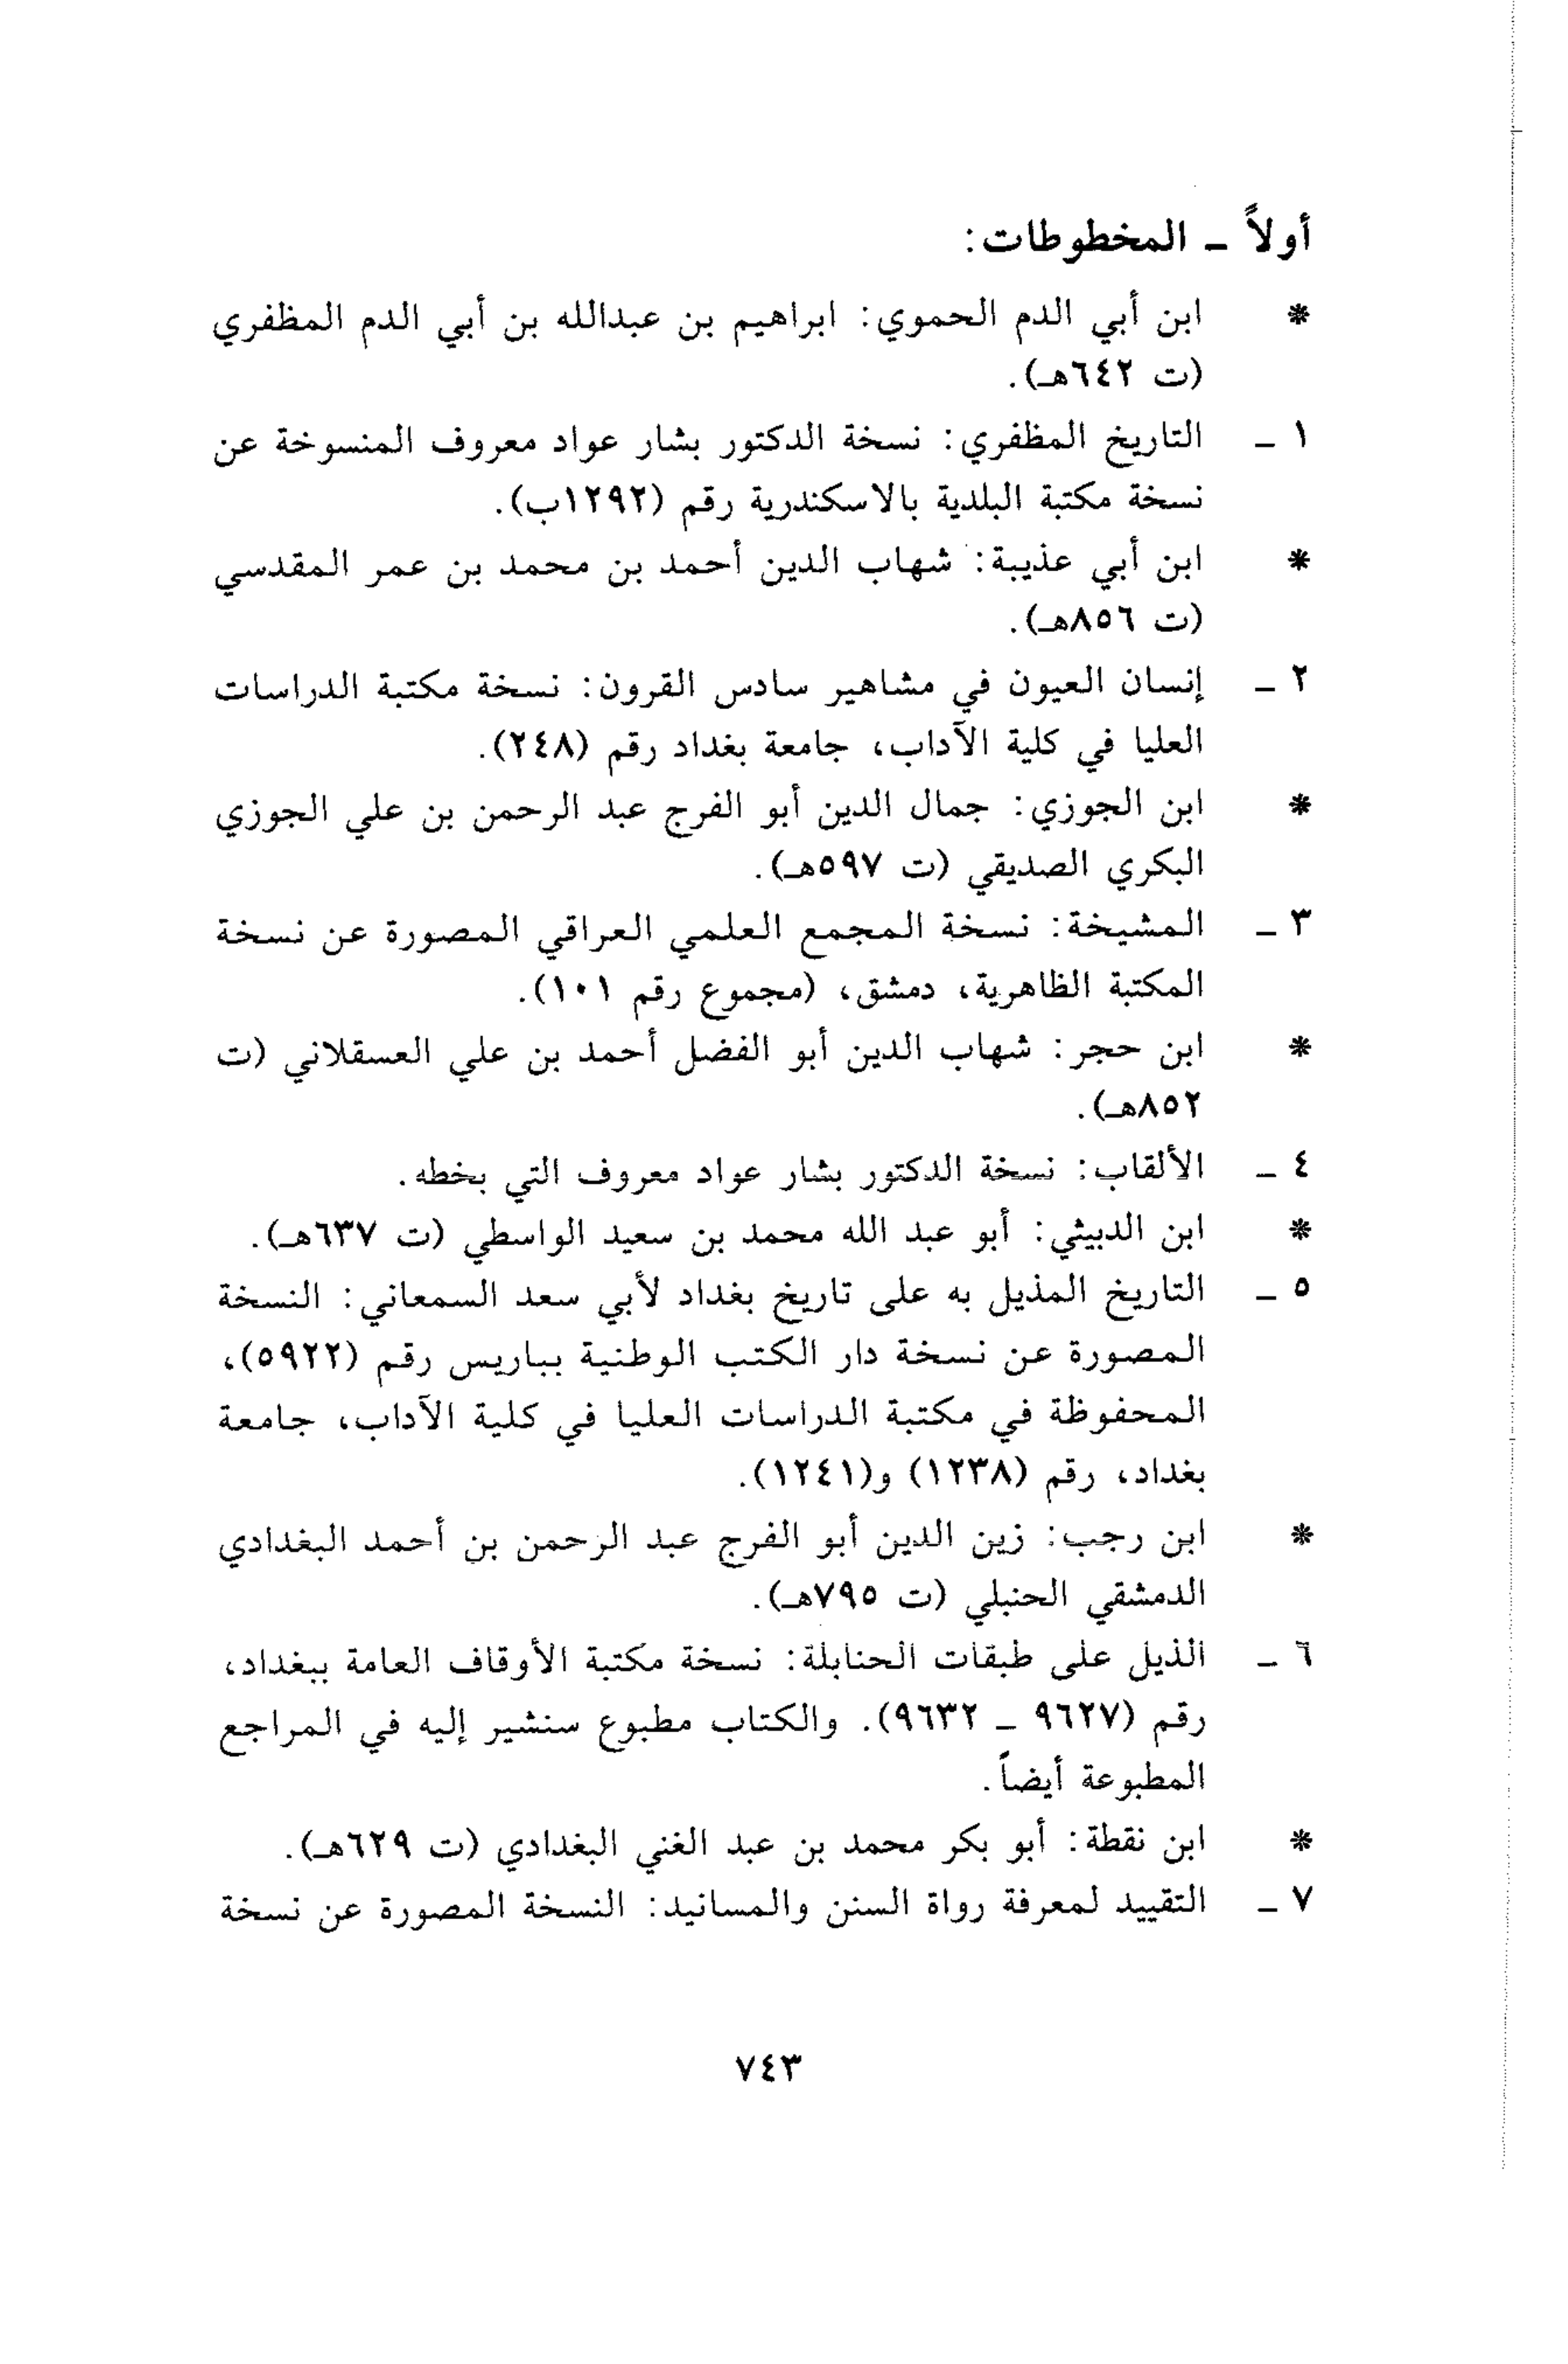 أولاً ـ المخطوطات:
* ابن أبي الدم الحموي: ابراهيم بن عبدالله بن أبي الدم المظفري
(ت ٦٤٢هـ).
١ ـ التاريخ المظفري: نسخة الدكتور بشار عواد معروف المنسوخة عن
نسخة مكتبة البلدية بالاسكندرية رقم (١٢٩٢ب).
* ابن أبي عذيبة: شهاب الدين أحمد بن محمد بن عمر المقدسي
(ت ٨٥٦هـ).
٢ ـ إنسان العيون في مشاهير سادس القرون: نسخة مكتبة الدراسات
العليا في كلية الآداب، جامعة بغداد رقم (٢٤٨).
* ابن الجوزي: جمال الدين أبو الفرج عبد الرحمن بن علي الجوزي
البكري الصديقي (ت ٥٩٧هـ).
٣ ـ المشيخة: نسخة المجمع العلمي العراقي المصورة عن نسخة
المكتبة الظاهرية، دمشق، (مجموع رقم ١٠١).
* ابن حجر: شهاب الدين أبو الفضل أحمد بن علي العسقلاني (ت
٨٥٢هـ).
٤ ـ الألقاب: نسخة الدكتور بشار عواد معروف التي بخطه.
* ابن الدبيثي: أبو عبد الله محمد بن سعيد الواسطي (ت ٦٣٧هـ).
٥ ـ التاريخ المذيل به على تاريخ بغداد لأبي سعد السمعاني: النسخة
المصورة عن نسخة دار الكتب الوطنية بباريس رقم (٥٩٢٢)،
المحفوظة في مكتبة الدراسات العليا في كلية الآداب، جامعة
بغداد، رقم (١٢٣٨) و(١٢٤١).
* ابن رجب: زين الدين أبو الفرج عبد الرحمن بن أحمد البغدادي
الدمشقي الحنبلي (ت ٧٩٥هـ).
٦ ـ الذيل على طبقات الحنابلة: نسخة مكتبة الأوقاف العامة ببغداد،
رقم (٩٦٢٧ ـ ٩٦٣٢). والكتاب مطبوع سنشير إليه في المراجع
المطبوعة أيضاً.
* ابن نقطة: أبو بكر محمد بن عبد الغني البغدادي (ت ٦٢٩هـ).
٧ ـ التقييد لمعرفة رواة السنن والمسانيد: النسخة المصورة عن نسخة
٧٤٣